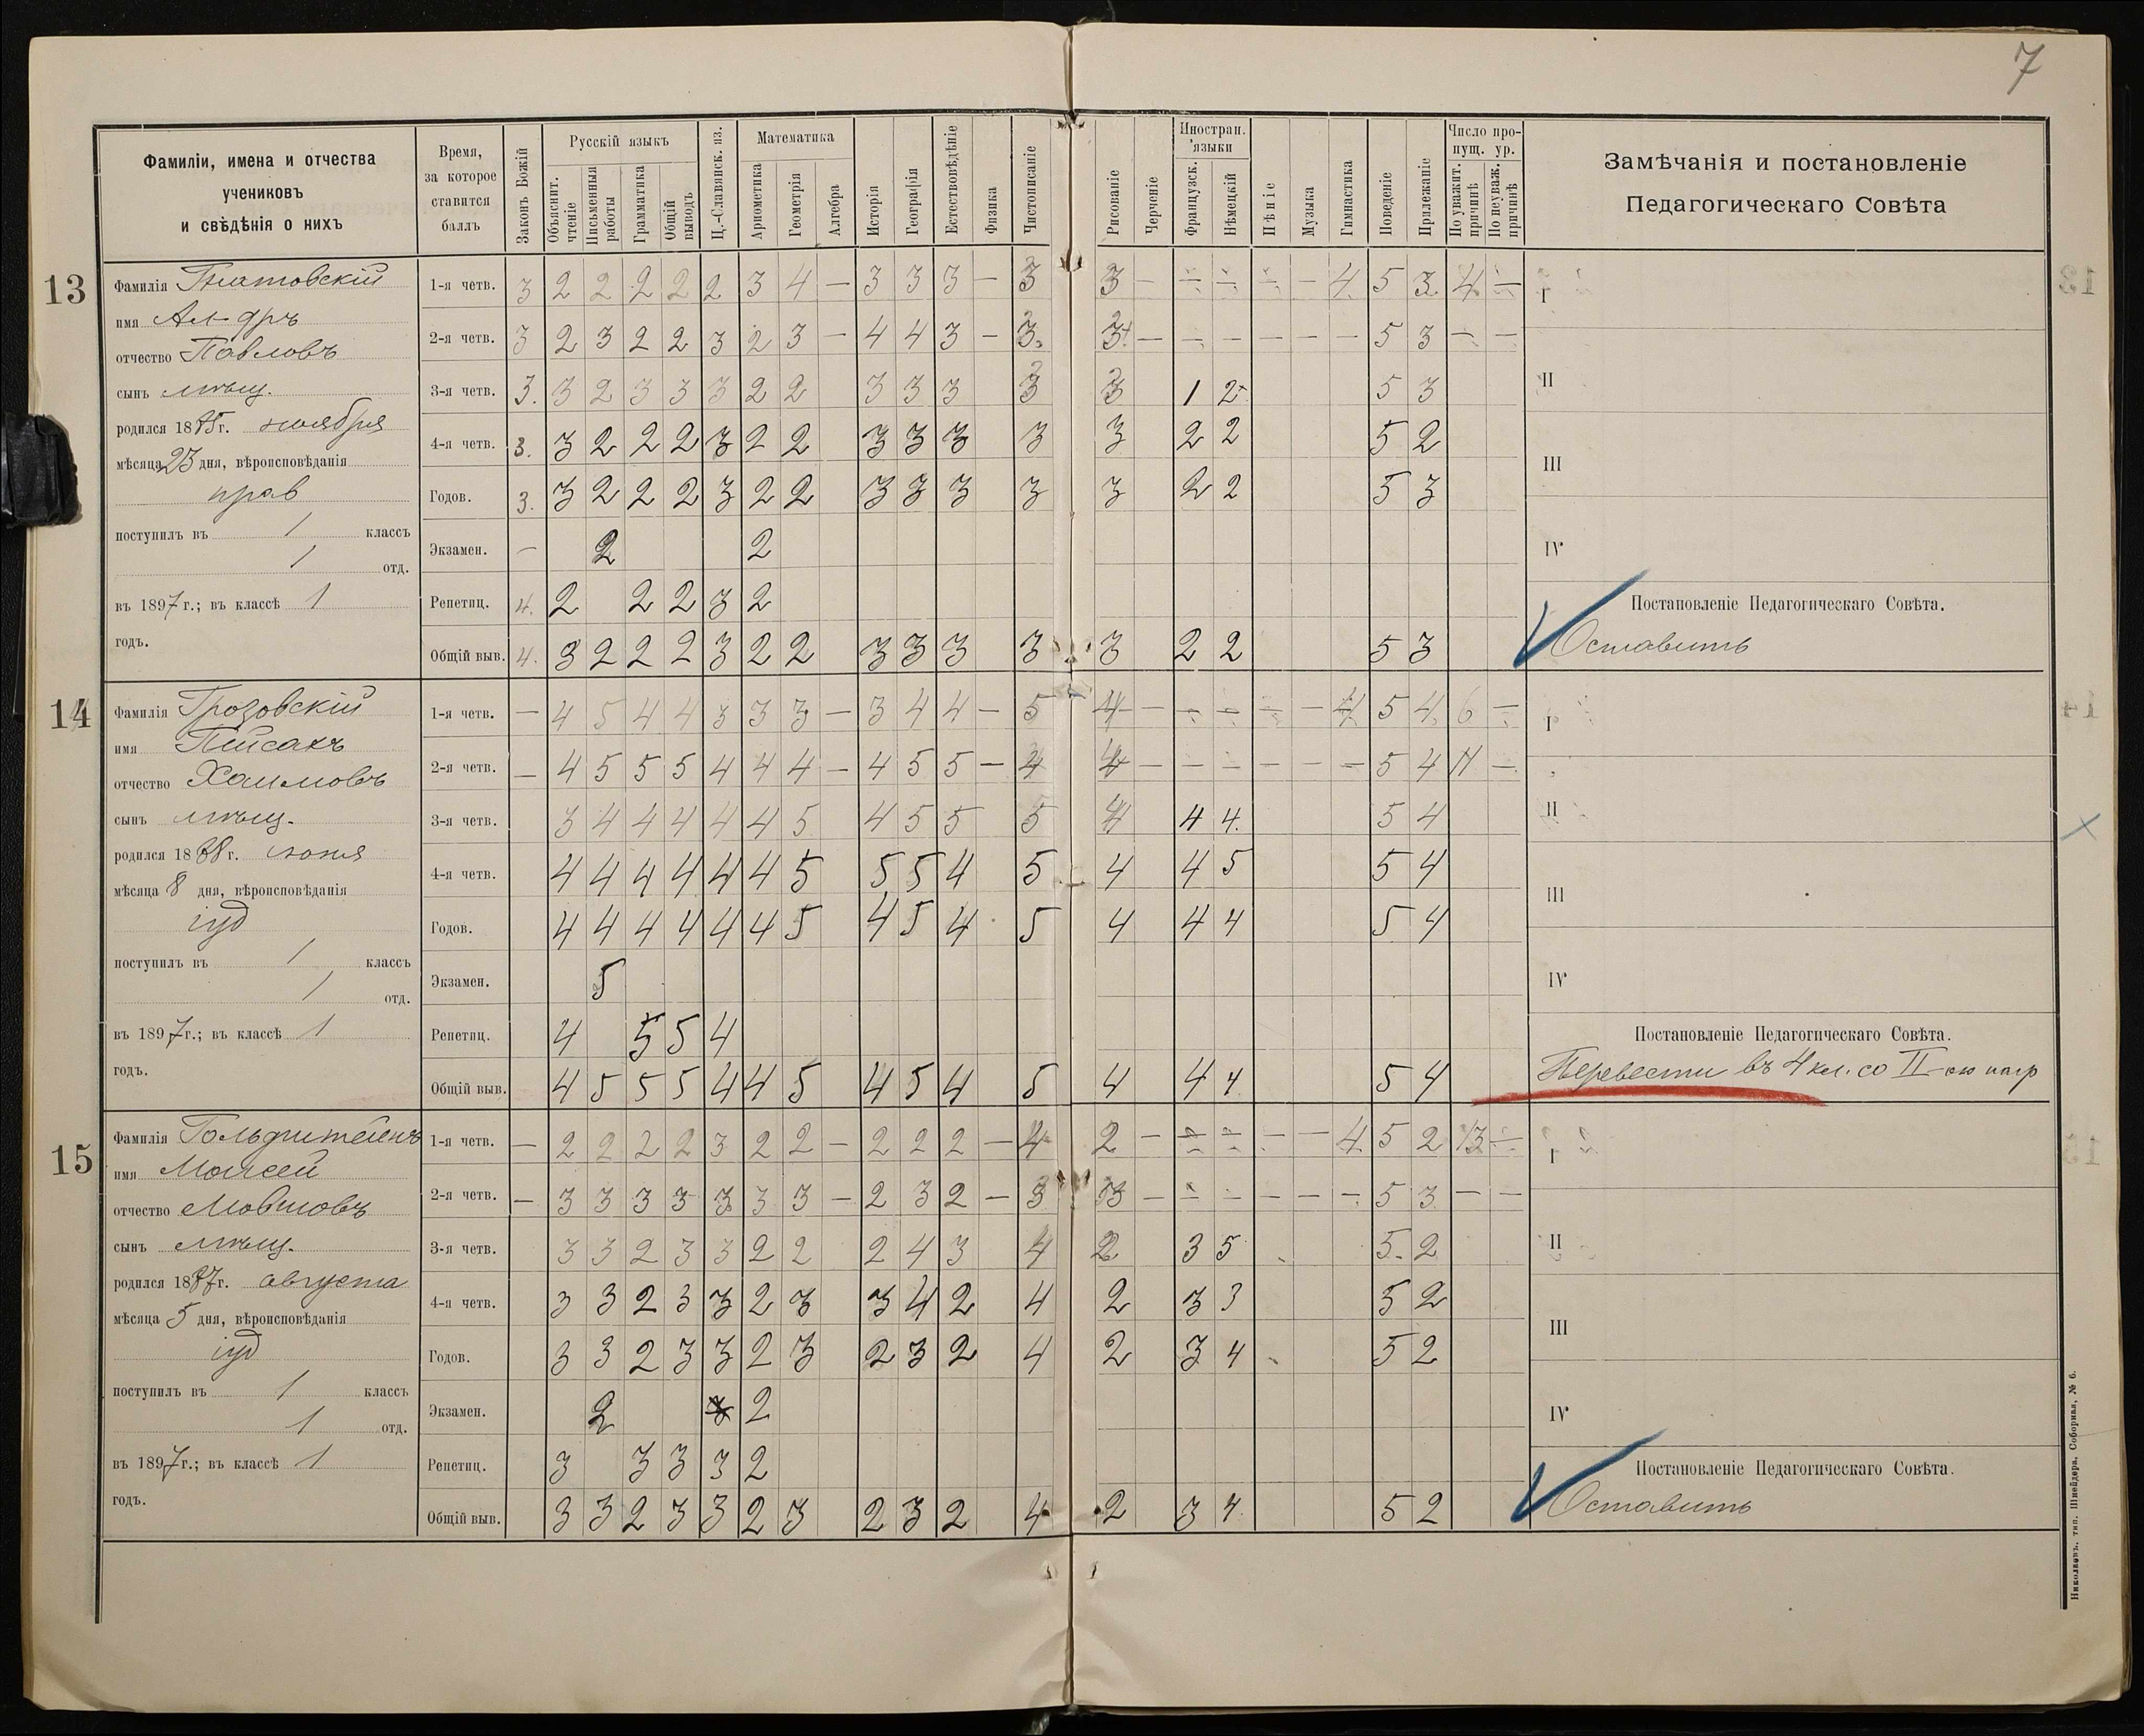 7
Фамиліи, имена и отчества
учениковъ
и свѣдѣнія о нихъ
Время,
за которое
ставится
баллъ
Законъ Божій
Русскій языкъ
Объяснит. чтеніе
Письменныя работы
Грамматика
Общій выводъ
Ц.-Славянск. яз.
Математика
Арифметика
Геометрія
Алгебра
Исторія
Географія
Естествовѣдѣніе
Физика
Чистописаніе
Рисованіе
Черченіе
Иностран. языки
Французск.
Нѣмецкій
Пѣніе
Музыка
Гимнастика
Поведеніе
Прилежаніе
Число пропущ. ур.
По уважит. причинѣ
По неуваж. причинѣ
Замѣчанія и постановленіе
Педагогическаго Совѣта
13
Фамилія Гнатовскій
имя Ал-дръ
отчество Павловъ
сынъ мѣщ.
родился 1885г. ноября
мѣсяца 23 дня, вѣроисповѣданія
прав
поступилъ въ 1 классъ
1 отд.
въ 1897г.; въ классѣ 1
годъ.
1-я четв. 3 2 2 2 2 2 3 4 — 3 3 3 — 3 3 — — — — — 4 5 3 4 —
2-я четв. 3 2 3 2 2 3 2 3 — 4 4 3 — 3 3 — — — — — — 5 3 — —
3-я четв. 3. 3 2 3 3 3 2 2 3 3 3 3 3 1 2 5 3
4-я четв. 3. 3 2 2 2 3 2 2 3 3 3 3 3 2 2 5 2
Годов. 3. 3 2 2 2 3 2 2 3 3 3 3 3 2 2 5 3
Экзамен. — 2 2
Репетиц. 4. 2 2 2 3 2
Общій выв. 4. 3 2 2 2 3 2 2 3 3 3 3 3 2 2 5 3
I
II
III
IV
Постановленіе Педагогическаго Совѣта.
Оставить
14
Фамилія Грозовскій
имя Пейсахъ
отчество Хаимовъ
сынъ мѣщ.
родился 1888г. іюня
мѣсяца 8 дня, вѣроисповѣданія
іуд
поступилъ въ 1 классъ
1 отд.
въ 1897г.; въ классѣ 1
годъ.
1-я четв. — 4 5 4 4 3 3 3 — 3 4 4 — 5 4 — — — — — 4 5 4 6 —
2-я четв. — 4 5 5 5 4 4 4 — 4 5 5 — 4 4 — — — — — — 5 4 11 —
3-я четв. 3 4 4 4 4 4 5 4 5 5 5 4 4 4. 5 4
4-я четв. 4 4 4 4 4 4 5 5 5 4 5 4 4 5 5 4
Годов. 4 4 4 4 4 4 5 4 5 4 5 4 4 4 5 4
Экзамен. 5
Репетиц. 4 5 5 4
Общій выв. 4 5 5 5 4 4 5 4 5 4 5 4 4 4 5 4
I
II
III
IV
Постановленіе Педагогическаго Совѣта.
Перевести въ 4 кл. со II-ою нагр
15
Фамилія Гольдштейнъ
имя Моисей
отчество Мовшовъ
сынъ мѣщ.
родился 1887г. августа
мѣсяца 5 дня, вѣроисповѣданія
іуд
поступилъ въ 1 классъ
1 отд.
въ 1897г.; въ классѣ 1
годъ.
1-я четв. — 2 2 2 2 3 2 2 — 2 2 2 — 4 2 — — — — — 4 5 2 13 —
2-я четв. — 3 3 3 3 3 3 3 — 2 3 2 — 3 3 — — — — — — 5 3 — —
3-я четв. 3 3 2 3 3 2 2 2 4 3 4 2 3 5 5. 2
4-я четв. 3 3 2 3 3 2 3 3 4 2 4 2 3 3 5 2
Годов. 3 3 2 3 3 2 3 2 3 2 4 2 3 4 5 2
Экзамен. 2 2
Репетиц. 3 3 3 3 2
Общій выв. 3 3 2 3 3 2 3 2 3 2 4 2 3 4 5 2
I
II
III
IV
Постановленіе Педагогическаго Совѣта.
Оставить
Николаевъ, тип. Шнейдера, Соборная, № 6.